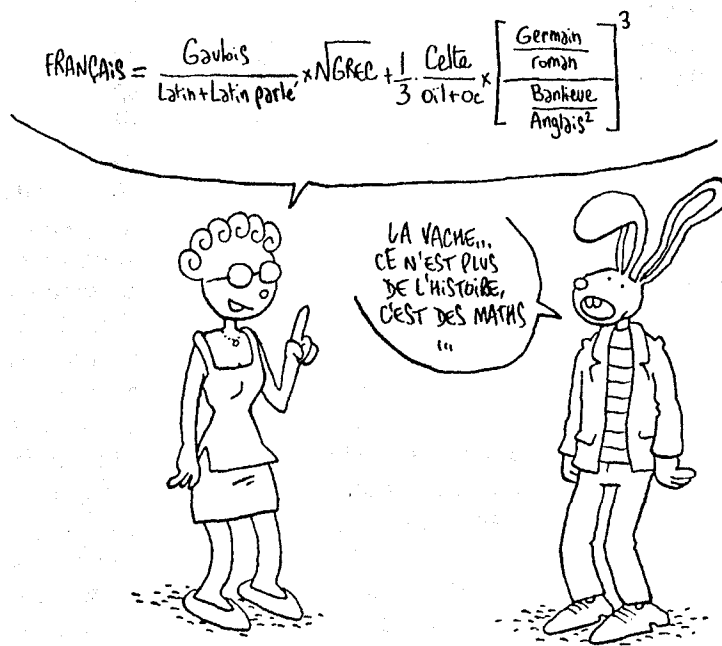 FRANÇAIS = Gaulois / Latin + Latin parlé × √GREC + 1/3 · Celte / oil + oc × [ Germain / roman / Banlieue / Anglais² ]³
LA VACHE...
CE N'EST PLUS
DE L'HISTOIRE,
C'EST DES MATHS
...